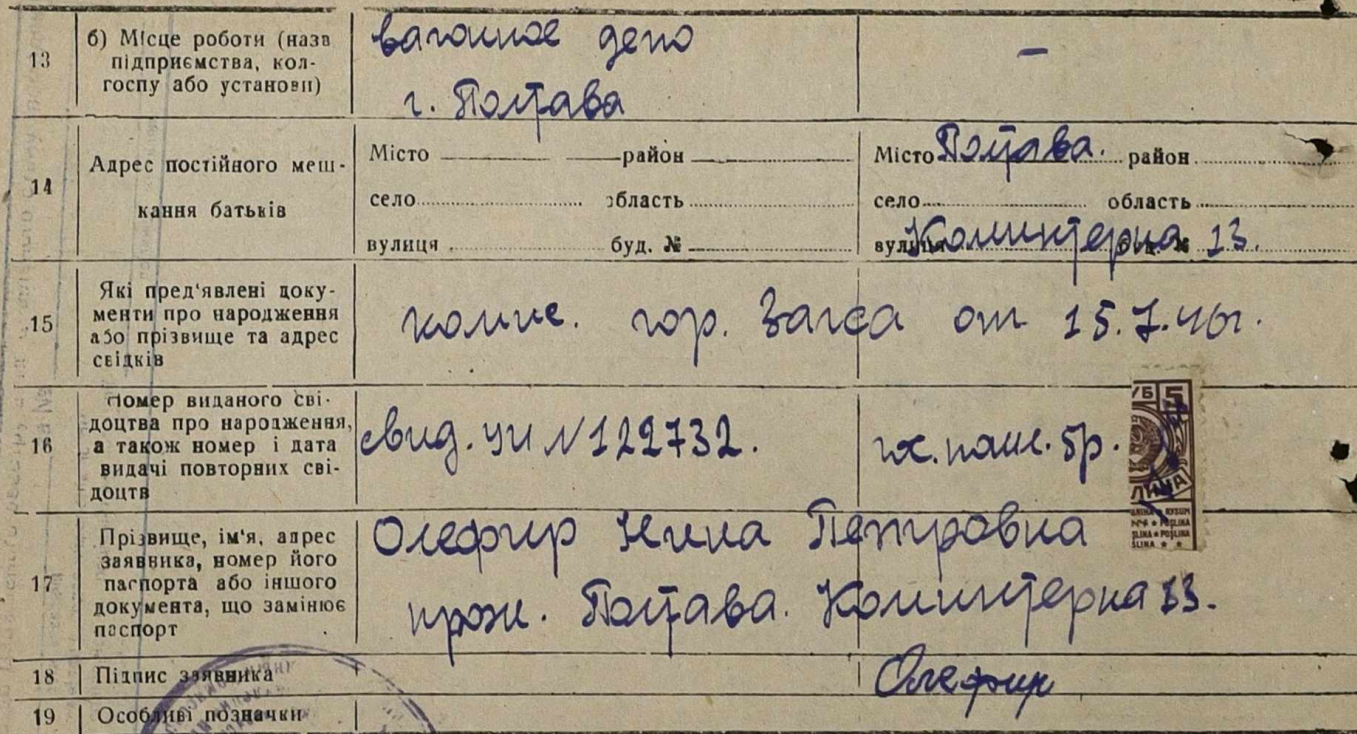 13
б) Місце роботи (назв
підприємства, кол-
госпу або установи)
вагонное депо
г. Полтава
—
14
Адрес постійного меш-
кання батьків
Місто район
село область
вулиця буд. №
Місто Полтава. район
село область
вулиця Коминтерна буд. № 13.
15
Які пред'явлені доку-
менти про народження
або прізвище та адрес
свідків
гор. Загса от 15.7.46г.
16
Номер виданого сві-
доцтва про народження,
а також номер і дата
видачі повторних сві-
доцтв
свид. УИ №122732.
5р.
УБ 5
17
Прізвище, ім'я, адрес
заявника, номер його
паспорта або іншого
документа, що замінює
паспорт
Олефир Нина Петровна
прож. Полтава. Коминтерна 13.
18
Підпис заявника
Олефир
19
Особливі позначки